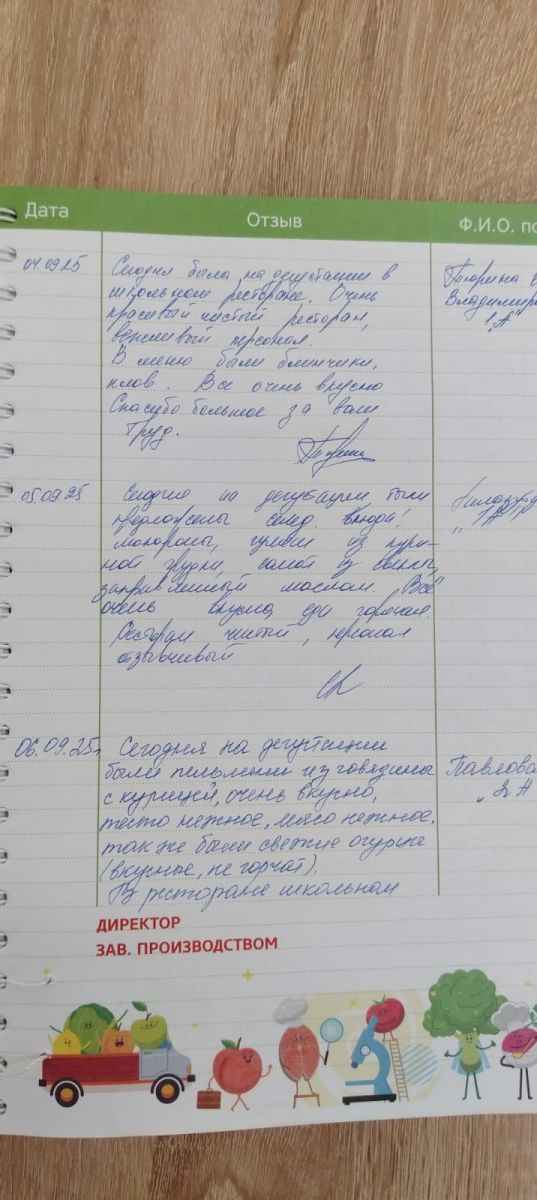 Дата Отзыв Ф.И.О. по
04.09.25 Сегодня была на дегустации в Тюрина
школьном ресторане. Очень Владимир
красивый чистый ресторан, 1"А"
вежливый персонал.
В меню были блинчики,
плов. Все очень вкусно
Спасибо большое за ваш
труд.
05.09.25 Сегодня на дегустации были
предложены след блюда:
макароны, гуляш из кури-
ной грудки, салат из свеклы,
заправленный маслом. Всё
очень вкусно, еда горячая.
Ресторан чистый, персонал
отзывчивый
06.09.25г. Сегодня на дегустации
были пельмени из говядины Павлова
с курицей, очень вкусно,
тесто нежное, мясо нежное.
так же были свежие огурцы
(вкусные, не горчат).
В ресторане школьном
ДИРЕКТОР
ЗАВ. ПРОИЗВОДСТВОМ